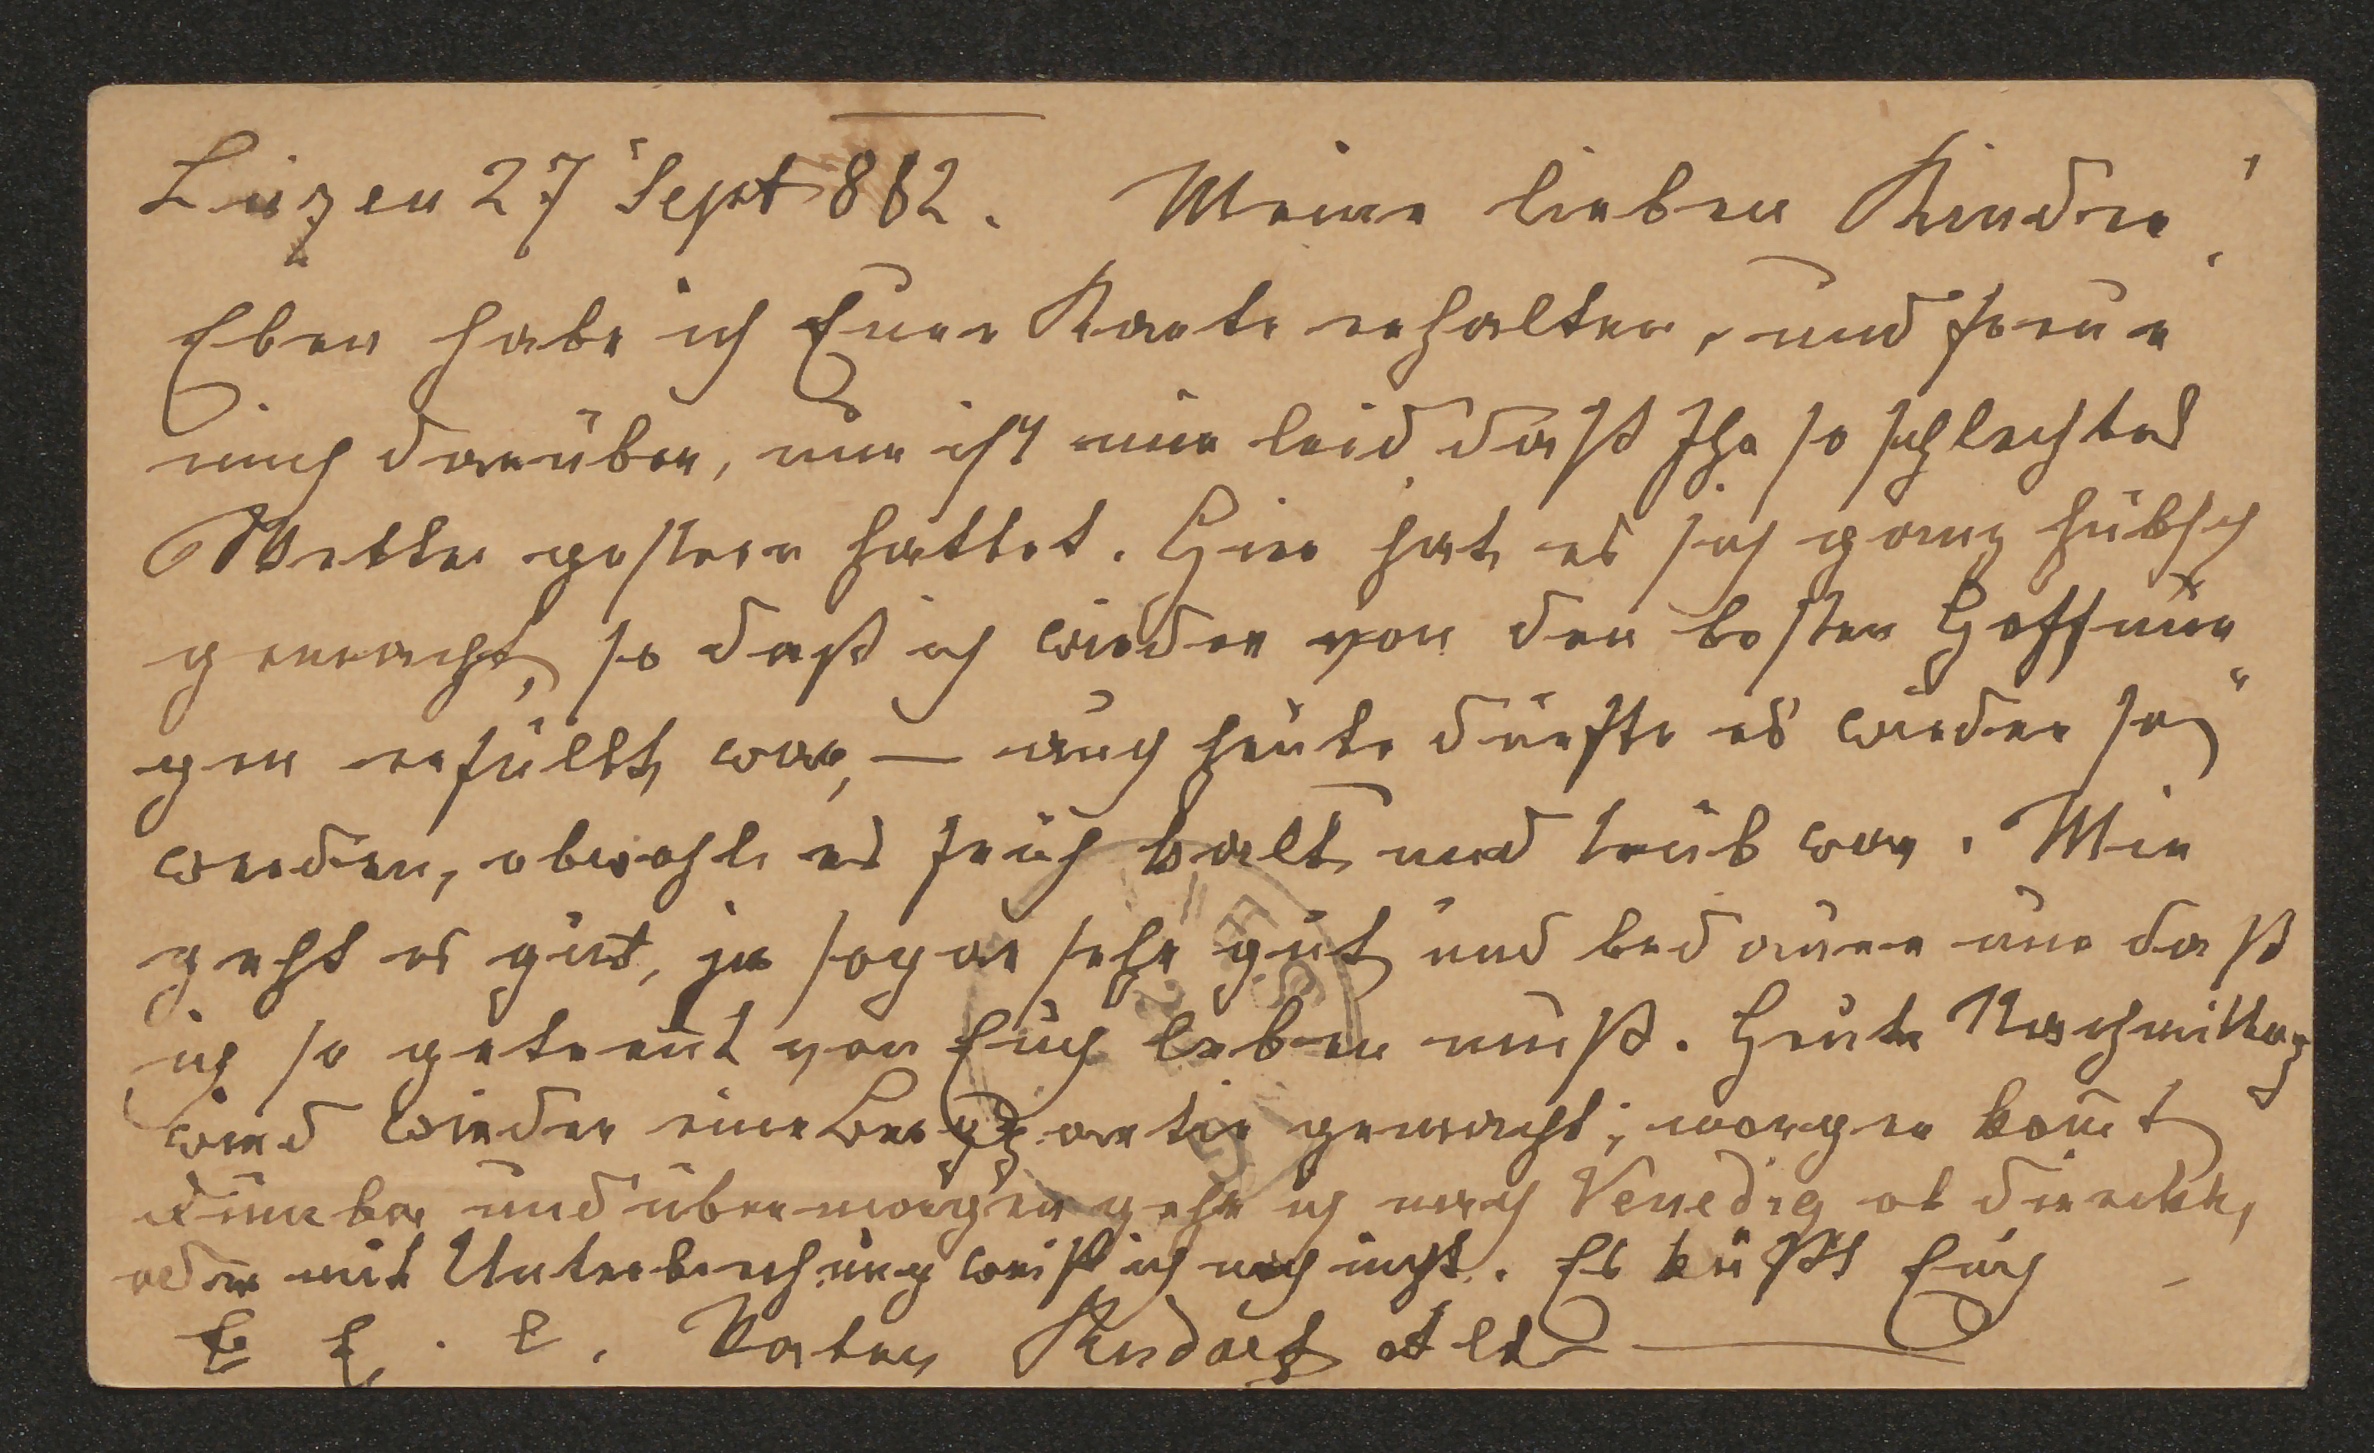 Luzern 27 Sept 882. Meine lieben Kinder!
Eben habe ich Eure Karte erhalten, und freue
mich darüber, nur ist mir leid daß Ihr so schlechtes
Wetter gestern hattet. Hier hat es sich ganz hübsch
gemacht, so daß ich wieder von den besten Hoffnun„
gen erfüllt war, — auch heute dürfte es wieder so
werden, obwohl es früh kalt und trüb war. Mir
geht es gut, ja sogar sehr gut und bedaure nur daß
ich so getrent von Euch leben muß. Heute Nachmittag
wird wieder eine Bergpartie gemacht; morgen komt
und übermorgen gehe ich nach Venedig ob direckt,
oder mit Unterbrechung weiß ich noch nicht. Es küßt Euch
E E. E. Vater Rudolf Alt